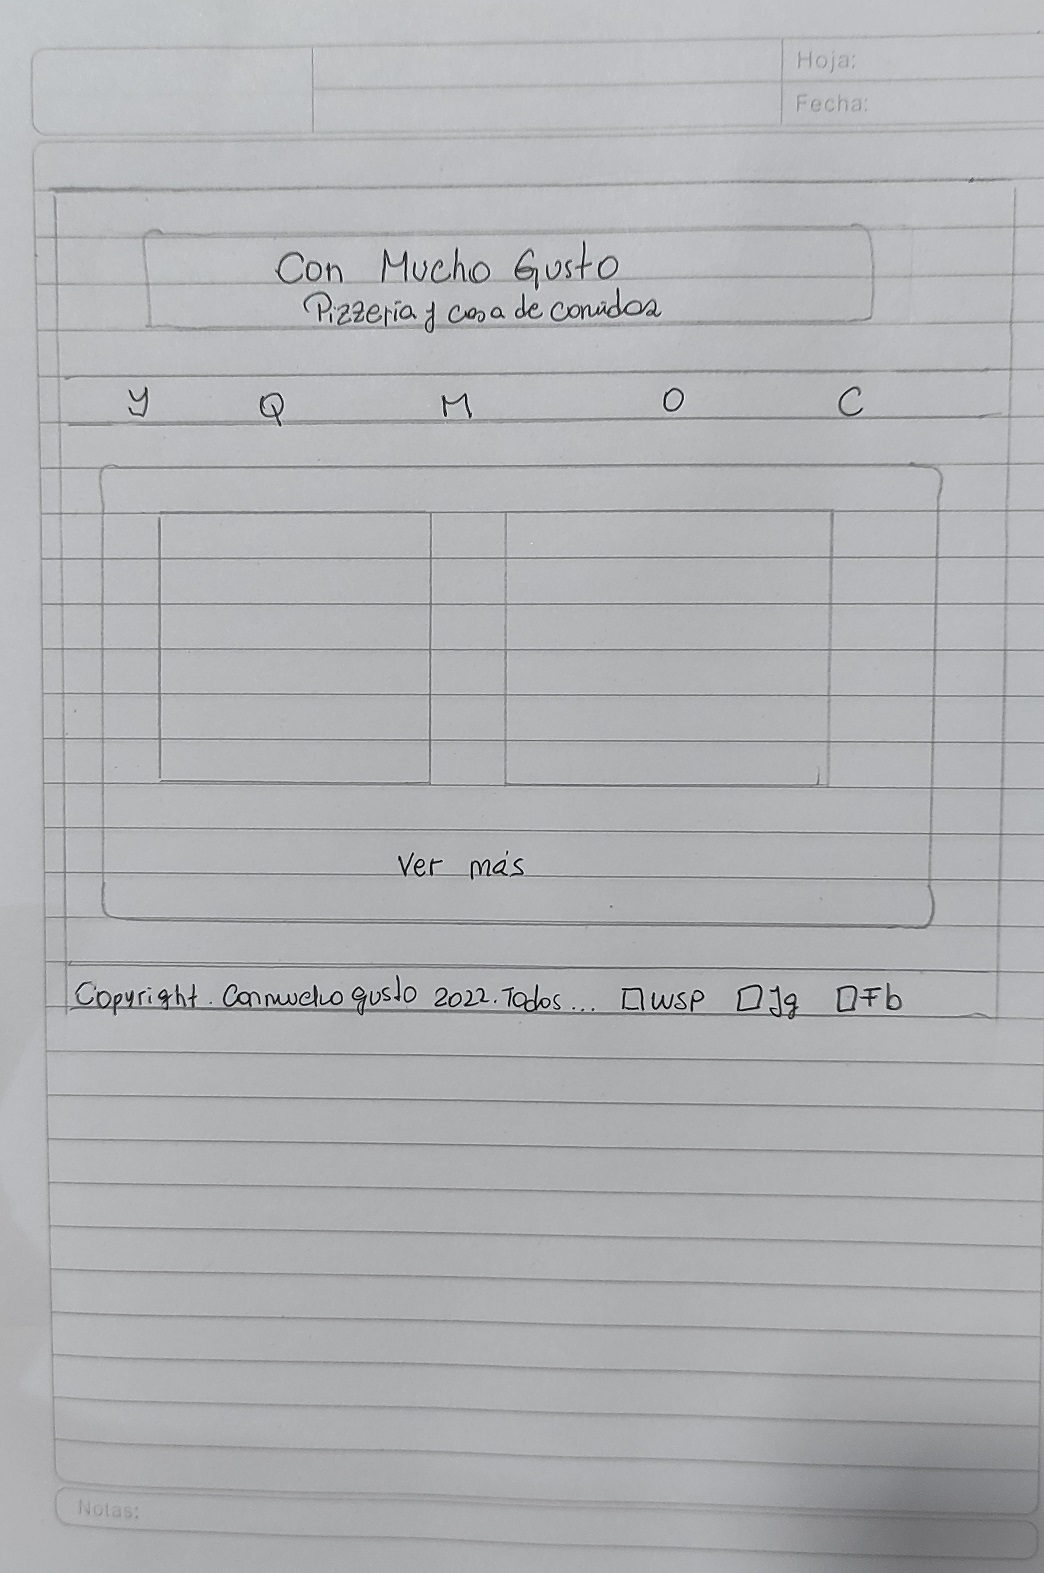 Hoja:
Fecha:
Con Mucho Gusto
Pizzería y casa de comidas
Y Q M O C
Ver más
Copyright. Con mucho gusto 2022. Todos... WSP Ig Fb
Notas: